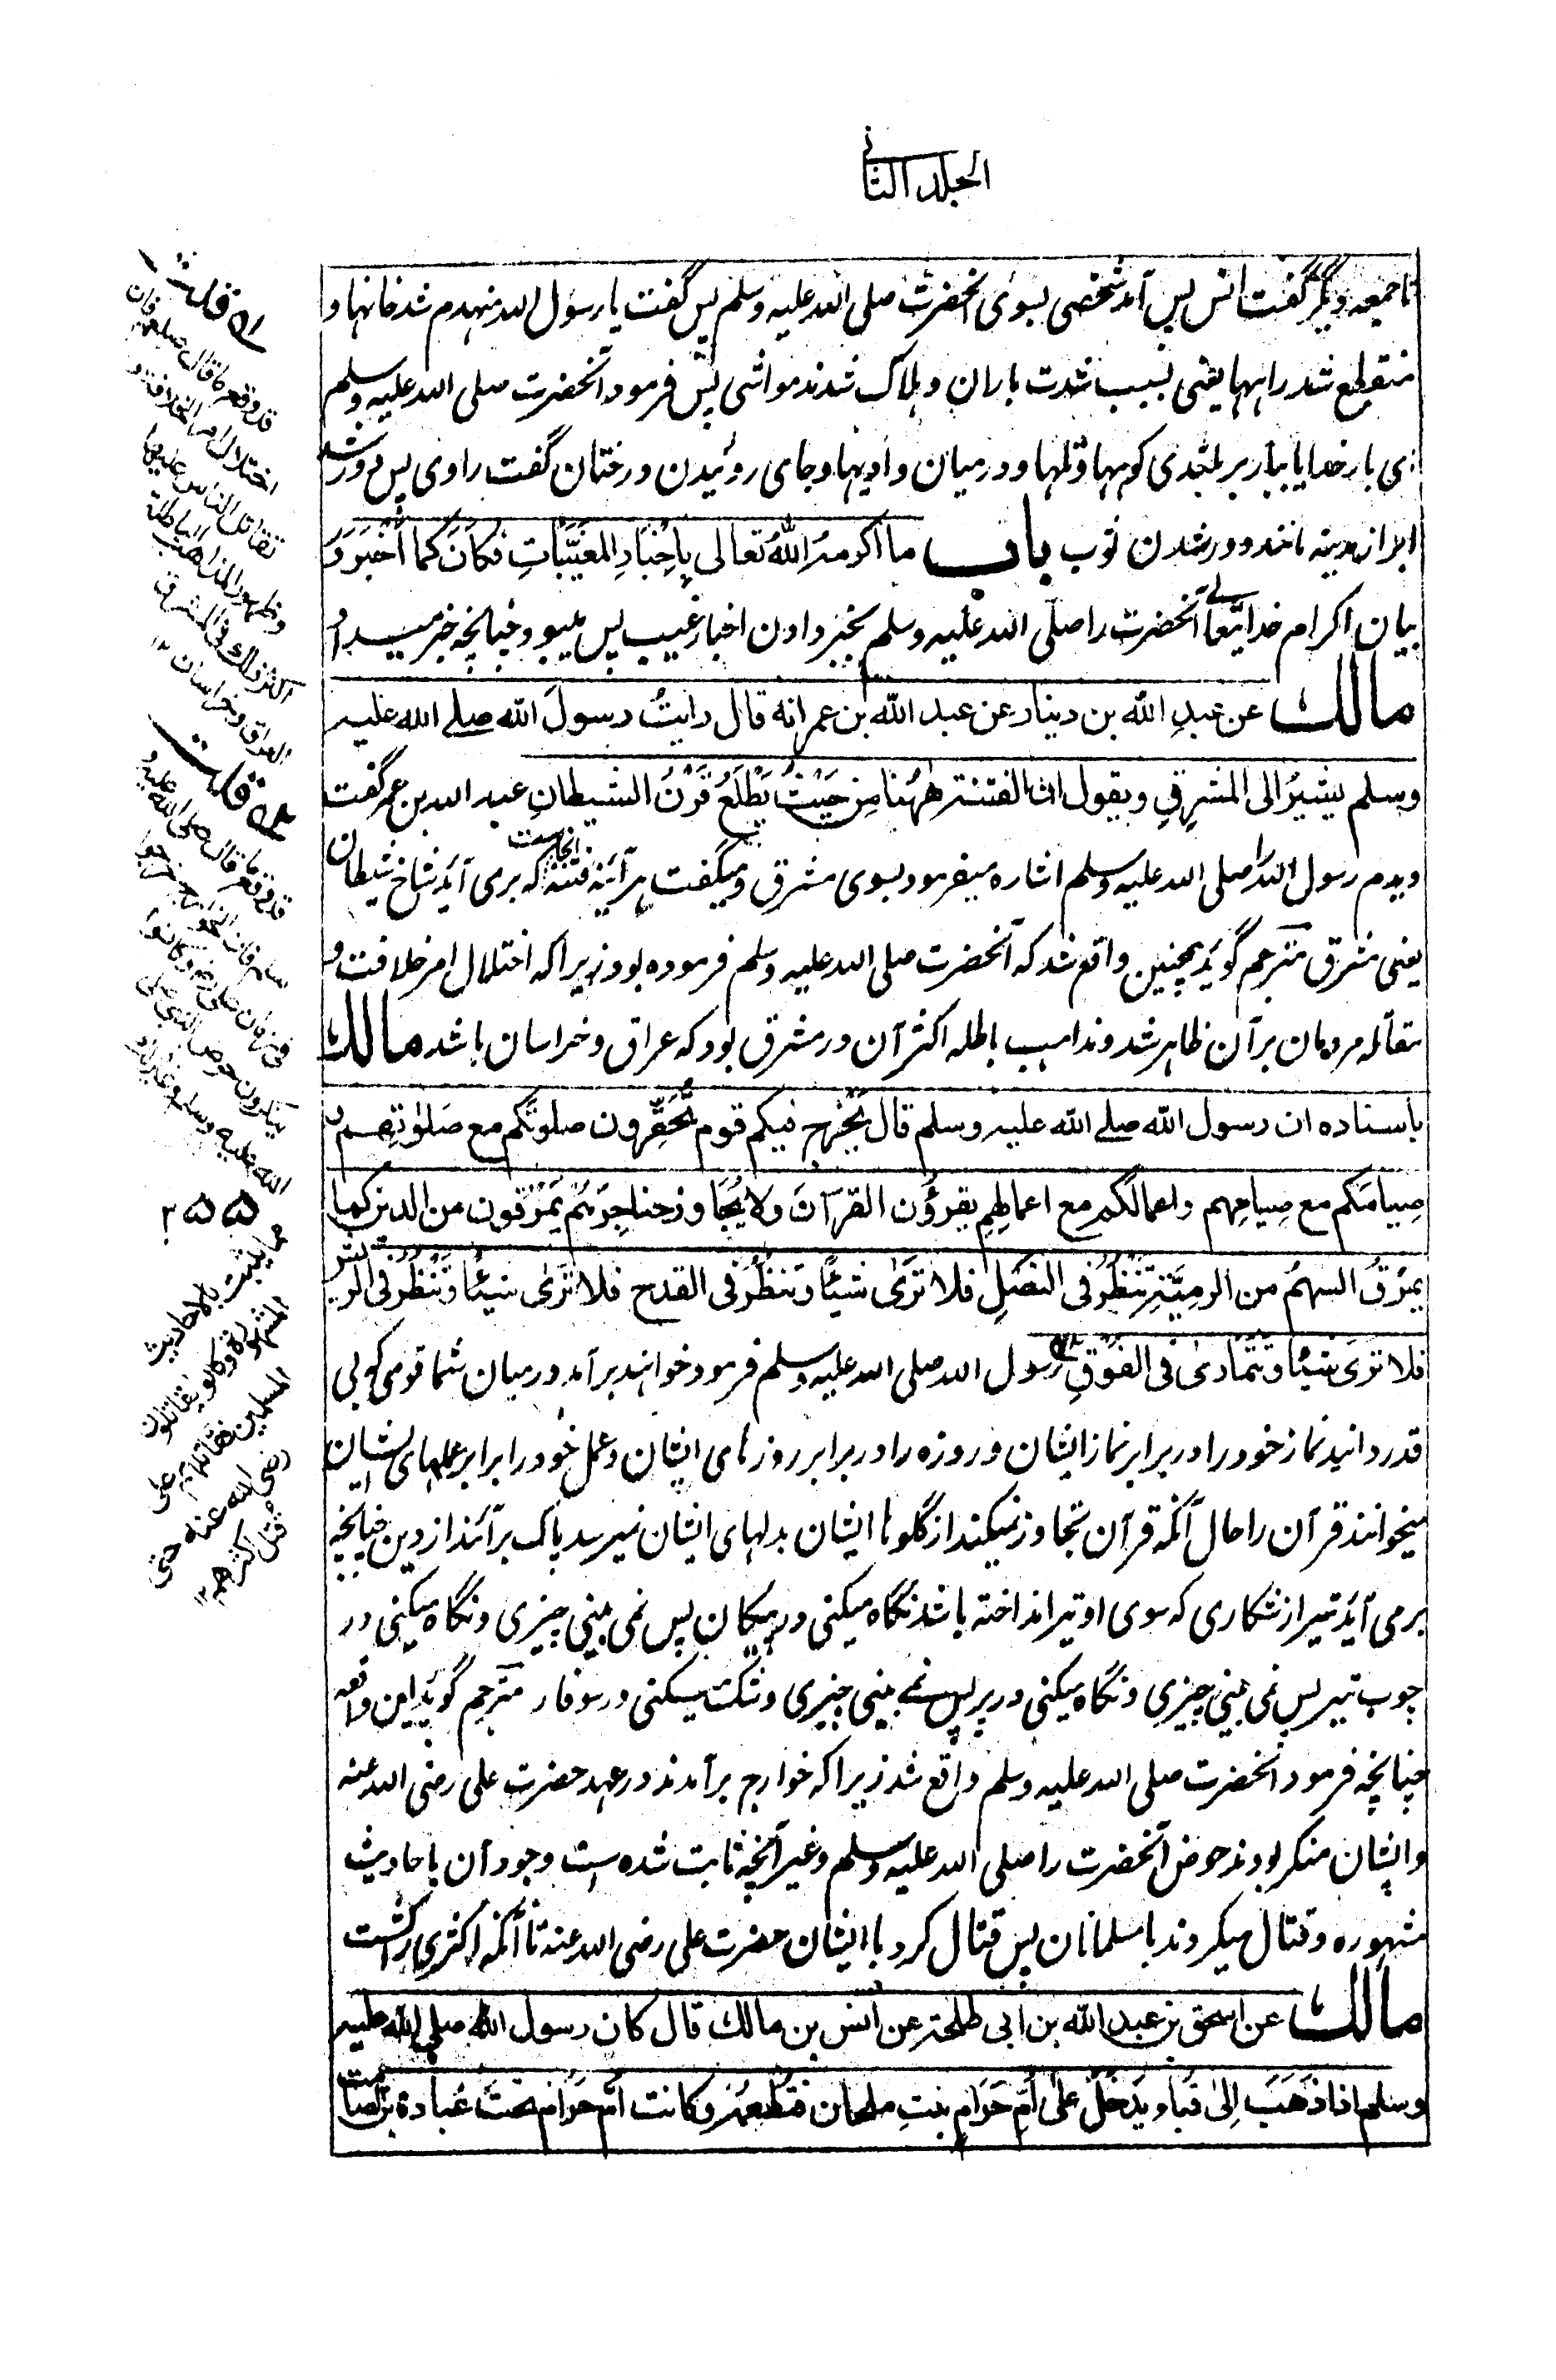 الجلد الثانی
تا جمعه دیگر گفت انس پس آمد شخصی بسوی آنحضرت صلی الله علیه وسلم پس گفت یا رسول الله منهدم شد خانها و
منقطع شد راهها یعنی بسبب شدت باران و هلاک شدند مواشی پس فرمود آنحضرت صلی الله علیه وسلم
ای بار خدایا ببار بر بلندی کوهها و تلها و در میان وادیها و جای روئیدن درختان گفت راوی پس دور شد
ابر از مدینه مانند دور شدن ثوب باب ما اکرمه الله تعالی بِاِخْبَارِ المغَیَّبَاتِ فکَانَ کما اَخْبَرَ وَ
بیان اکرام خدایتعالے آنحضرت را صلی الله علیه وسلم بخبر دادن اخبار غیب پس میبود چنانچه خبر میداد
مالك عن عبدِ الله بن دینار عن عبد الله بن عمر انه قال رایتُ رسولَ الله صلے الله علیه
وسلم یشیرُ الی المشرِقِ ویقول ان الفتنة هٰهُنا مِن حَیْثُ یَطْلَعُ قَرْنُ الشیطانِ عبد الله بن عمر گفت
دیدم رسول الله را صلی الله علیه وسلم اشاره میفرمود بسوی مشرق و میگفت هر آئینه فتنه اینجاست که برمی آید شاخ شیطان
یعنی مشرق مترجم گوید همچنین واقع شد که آنحضرت صلی الله علیه وسلم فرموده بود زیرا که اختلال امر خلافت و
مقاتله مردمان بر آن ظاهر شد و مذاهب باطله اکثر آن در مشرق بود که عراق و خراسان باشد مالك
باسناده ان رسول الله صلے الله علیه وسلم قال یَخْرُج فیکم قوم تُحَقِّرون صلوتَکم مع صَلٰوتِهم و
صِیامَکم مع صِیامِهم واعمالَکم مع اعمالِهِم یقرؤُن القرآنَ ولا یُجَاوز حناجِرَهُم یَمْرُقون من الدین کما
یمرُقُ السهمُ من الرمِیَّةِ تَنْظُرُ فی النصَلِ فلا تَرَیٰ شیئًا وتنظُر فی القدح فلا تَرَی شیئًا وَتَنْظُر فی الریش
فلا تَرَی شیئًا وَتَتَمَارَیٰ فی الفُوْقِ رسول الله صلی الله علیه وسلم فرمود خواهند برآمد در میان شما قومی که بی
قدر دانید نماز خود را در برابر نماز ایشان و روزه را در برابر روزهای ایشان و عمل خود را برابر عملهای ایشان
میخوانند قرآن را حال آنکه قرآن تجاوز نمیکند از گلوها ایشان بدلهای ایشان نمیرسد پاک برآیند از دین چنانچه
برمی آید تیر از شکاری که سوی او تیر انداخته باشد نگاه میکنی در پیکان پس نمی بینی چیزی و نگاه میکنی در
چوب تیر پس نمی بینی چیزی و نگاه میکنی در پر پس نمے بینی چیزی و شک میکنی در سوفار مترجم گوید این واقعه
چنانچه فرمود آنحضرت صلی الله علیه وسلم واقع شد زیرا که خوارج برآمدند در عهد حضرت علی رضی الله عنه
و ایشان منکر بودند حوض آنحضرت را صلی الله علیه وسلم و غیر آنچه ثابت شده است وجود آن باحادیث
مشهوره و قتال میکردند با مسلمانان پس قتال کرد با ایشان حضرت علی رضی الله عنه تا آنکه اکثری را کشت
مالك عن اسحق بن عبد الله بن ابی طلحة عن انس بن مالك قال کان رسول الله صلی الله علیه
وسلم اذا ذَهَبَ اِلیٰ قُبا و یَدْخُلُ علیٰ اُمِّ حَرَامٍ بنتِ ملحان فتُطْعِمُه وکانت اُمّ حَرَام تحتَ عُبادة بن الصامت
قلت
قد وقع کما قال صلعم فان
اختلال امر الخلافة و
تقاتل الناس علیها
وظهور المذاهب الباطلة
اکثر ذلك فی المشرق
العراق وخراسان ۱۲
قلت
قد وقع ما قال صلی الله علیه و
سلم فان الخوارج خرجوا
فی زمان علی رض وکانوا
ینکرون حوض النبی صلی
الله علیه وسلم وغیر ذلك
مما یثبت بالاحادیث
المشهورة وکانوا یقاتلون
المسلمین فقاتلهم علی
رضی الله عنه حتی
قتل اکثرهم ۱۲